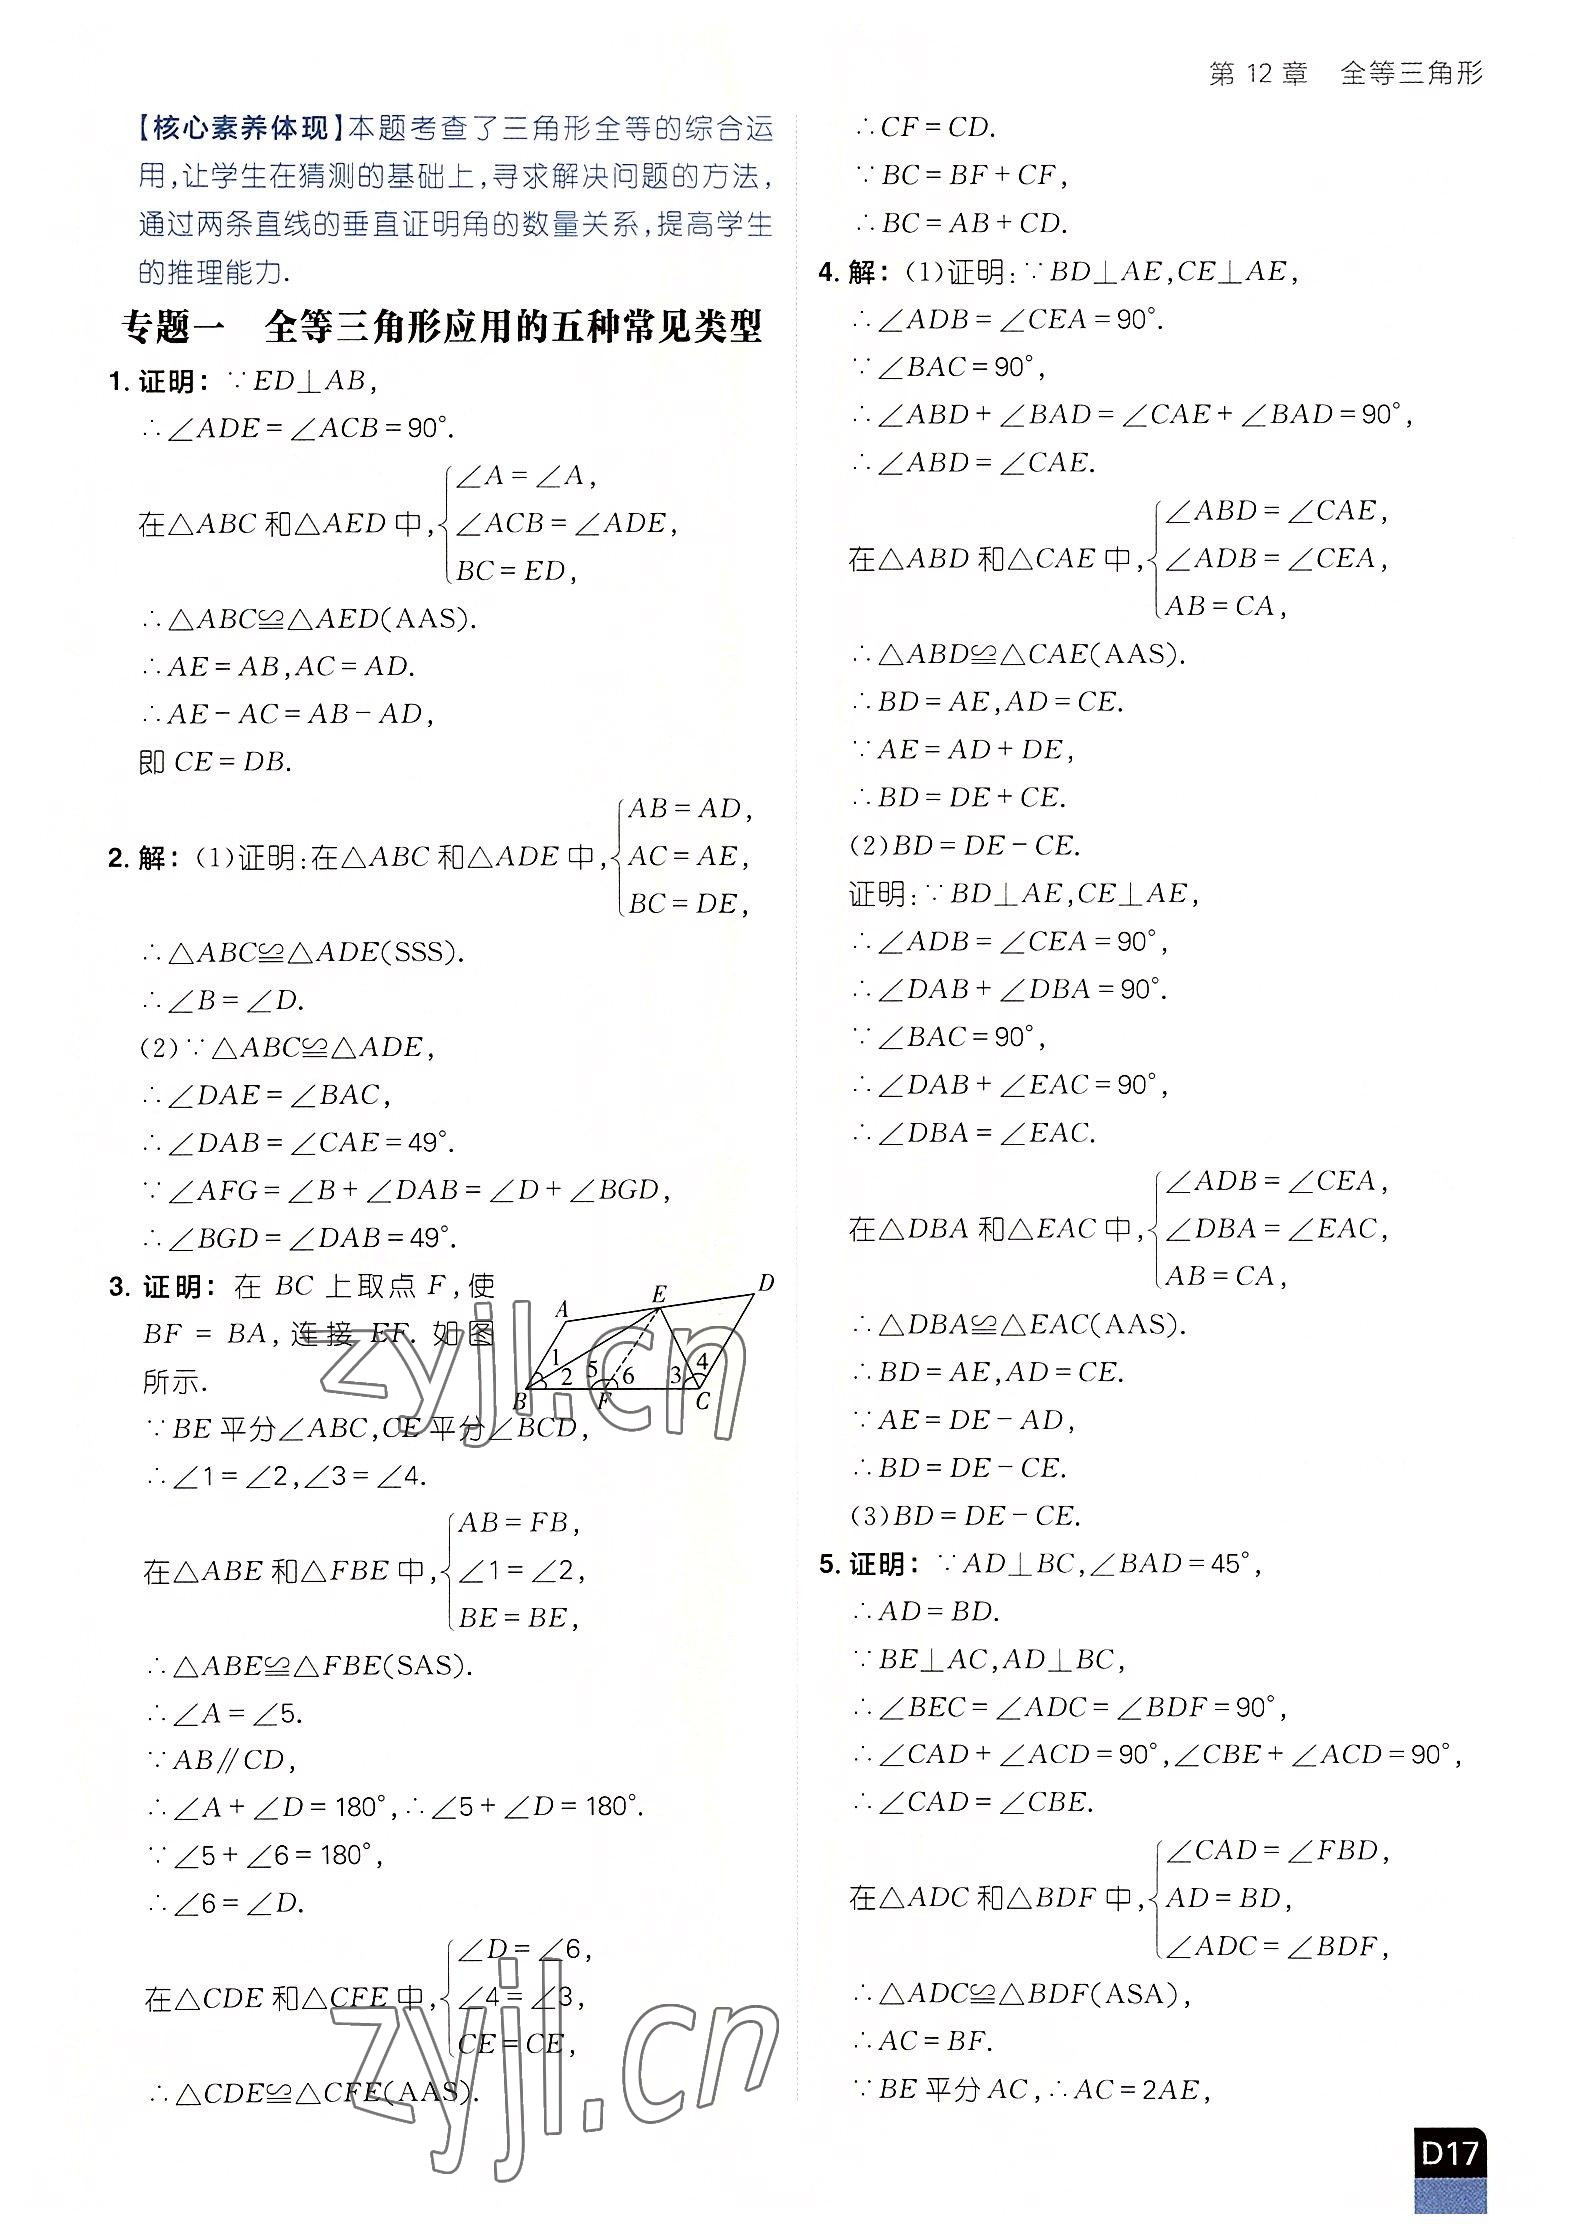 第 12 章 全等三角形
【核心素养体现】本题考查了三角形全等的综合运
用,让学生在猜测的基础上,寻求解决问题的方法,
通过两条直线的垂直证明角的数量关系,提高学生
的推理能力.
专题一 全等三角形应用的五种常见类型
1. 证明: ∵ED⊥AB,
∴∠ADE=∠ACB=90°.
∠A=∠A,
在△ABC 和△AED 中,{∠ACB=∠ADE,
BC=ED,
∴△ABC≌△AED(AAS).
∴AE=AB,AC=AD.
∴AE-AC=AB-AD,
即 CE=DB.
AB=AD,
2. 解: (1)证明:在△ABC 和△ADE 中,{AC=AE,
BC=DE,
∴△ABC≌△ADE(SSS).
∴∠B=∠D.
(2)∵△ABC≌△ADE,
∴∠DAE=∠BAC,
∴∠DAB=∠CAE=49°.
∵∠AFG=∠B+∠DAB=∠D+∠BGD,
∴∠BGD=∠DAB=49°.
3. 证明: 在 BC 上取点 F,使
BF = BA, 连接 EF. 如图
所示.
A E D
1 2 5 6 3 4
B F C
∵BE 平分∠ABC,CE 平分∠BCD,
∴∠1=∠2,∠3=∠4.
AB=FB,
在△ABE 和△FBE 中,{∠1=∠2,
BE=BE,
∴△ABE≌△FBE(SAS).
∴∠A=∠5.
∵AB∥CD,
∴∠A+∠D=180°,∴∠5+∠D=180°.
∵∠5+∠6=180°,
∴∠6=∠D.
∠D=∠6,
在△CDE 和△CFE 中,{∠4=∠3,
CE=CE,
∴△CDE≌△CFE(AAS).
∴CF=CD.
∵BC=BF+CF,
∴BC=AB+CD.
4. 解: (1)证明:∵BD⊥AE,CE⊥AE,
∴∠ADB=∠CEA=90°.
∵∠BAC=90°,
∴∠ABD+∠BAD=∠CAE+∠BAD=90°,
∴∠ABD=∠CAE.
∠ABD=∠CAE,
在△ABD 和△CAE 中,{∠ADB=∠CEA,
AB=CA,
∴△ABD≌△CAE(AAS).
∴BD=AE,AD=CE.
∵AE=AD+DE,
∴BD=DE+CE.
(2)BD=DE-CE.
证明:∵BD⊥AE,CE⊥AE,
∴∠ADB=∠CEA=90°,
∴∠DAB+∠DBA=90°.
∵∠BAC=90°,
∴∠DAB+∠EAC=90°,
∴∠DBA=∠EAC.
∠ADB=∠CEA,
在△DBA 和△EAC 中,{∠DBA=∠EAC,
AB=CA,
∴△DBA≌△EAC(AAS).
∴BD=AE,AD=CE.
∵AE=DE-AD,
∴BD=DE-CE.
(3)BD=DE-CE.
5. 证明: ∵AD⊥BC,∠BAD=45°,
∴AD=BD.
∵BE⊥AC,AD⊥BC,
∴∠BEC=∠ADC=∠BDF=90°,
∴∠CAD+∠ACD=90°,∠CBE+∠ACD=90°,
∴∠CAD=∠CBE.
∠CAD=∠FBD,
在△ADC 和△BDF 中,{AD=BD,
∠ADC=∠BDF,
∴△ADC≌△BDF(ASA),
∴AC=BF.
∵BE 平分 AC,∴AC=2AE,
zyjl.cn
zyjl.cn
D17